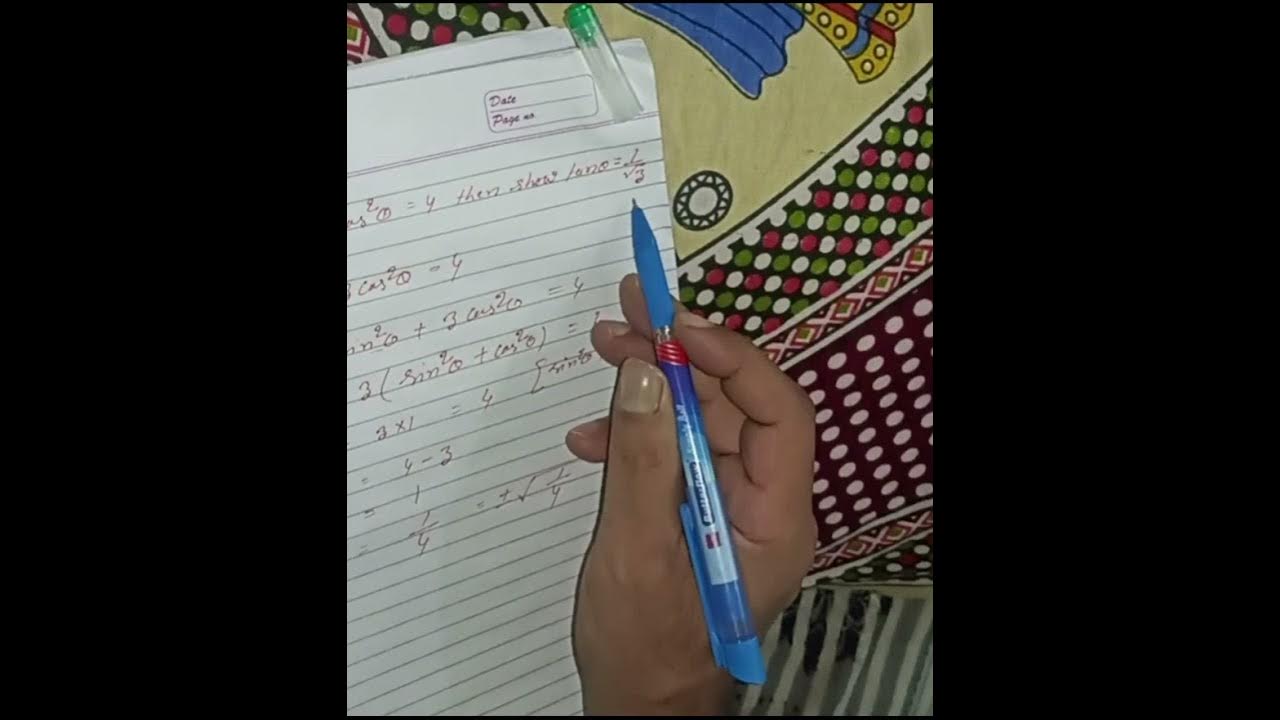 Date
Page no
cos²θ = 4 then show tanθ = 1/√3
3 cos²θ = 4
in²θ + 3 cos²θ = 4
3 ( sin²θ + cos²θ ) =
3 × 1 = 4 [ sin²θ
= 4 - 3
= 1
= 1/4 = ± √1/4